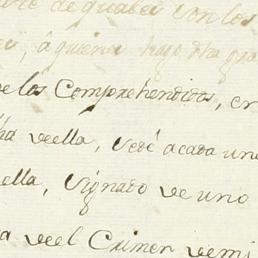 de quales con los
á quienes hago dha gra
los Comprehendidos, en
ha deella, sedé acada uno
ella, signado de uno
a deel Crimen demi